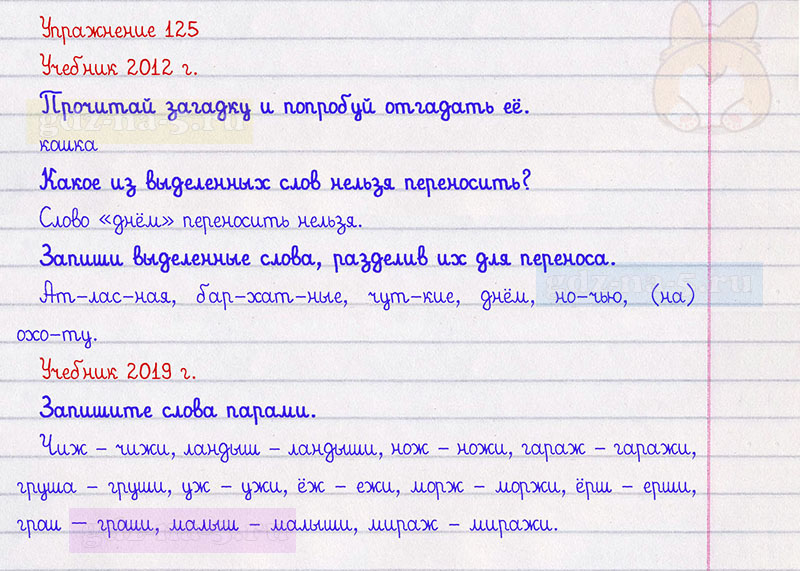 Упражнение 125
Учебник 2012 г.
Прочитай загадку и попробуй отгадать её.
gdz-na-5.ru
кошка
Какое из выделенных слов нельзя переносить?
Слово «днём» переносить нельзя.
Запиши выделенные слова, разделив их для переноса.
gdz-na-5.ru
Ат-лас-ная, бар-хат-ные, чут-кие, днём, но-чью, (на)
охо-ту.
Учебник 2019 г.
Запишите слова парами.
Чиж – чижи, ландыш – ландыши, нож – ножи, гараж – гаражи,
груша – груши, уж – ужи, ёж – ежи, морж – моржи, ёрш – ерши,
грош – гроши, малыш – малыши, мираж – миражи.
gdz-na-5.ru